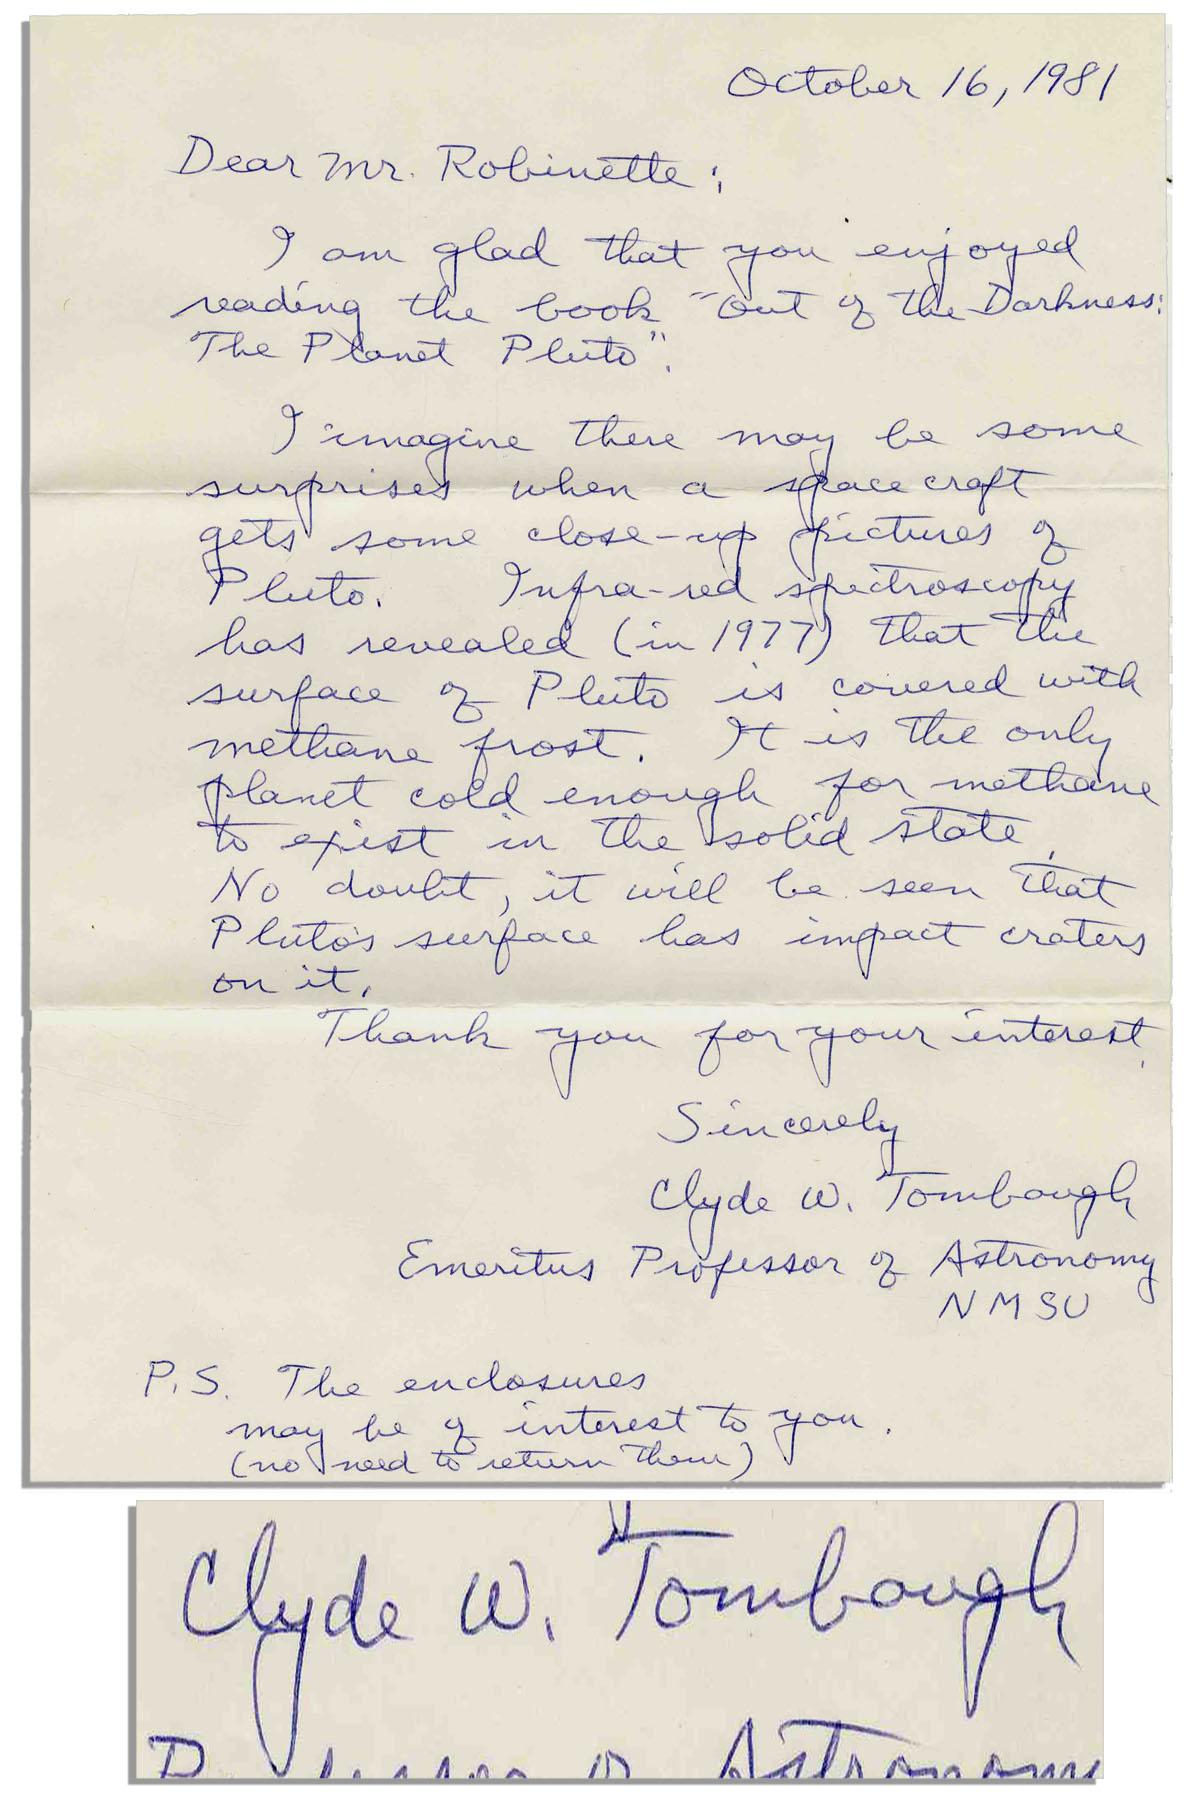 October 16, 1981
Dear Mr. Robinette:
I am glad that you enjoyed
reading the book "Out of the Darkness:
The Planet Pluto".
I imagine there may be some
surprises when a spacecraft
gets some close-up pictures of
Pluto. Infra-red spectroscopy
has revealed (in 1977) that the
surface of Pluto is covered with
methane frost. It is the only
planet cold enough for methane
to exist in the solid state.
No doubt, it will be seen that
Pluto's surface has impact craters
on it.
Thank you for your interest.
Sincerely
Clyde W. Tombaugh
Emeritus Professor of Astronomy
NMSU
P.S. The enclosures
may be of interest to you.
(no need to return them)
Clyde W. Tombaugh
Astronomy